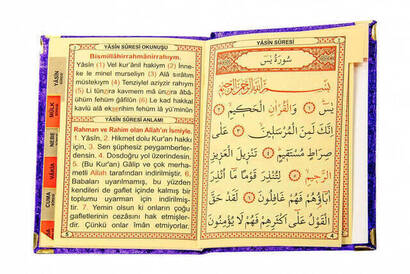 YÂSÎN SÛRESİ OKUNUŞU
Bismillâhirrahmânirrahıym.
Yâsîn (1) Vel kur'ânil hakiym (2) İnne-
ke le minel murseliyn (3) Alâ sırâtım
müstekıym (4) Tenziylel aziyzir rahıym
(5) Li tünzira kavmem mâ ünzira âbâ-
ühüm fehüm ğâfilûn (6) Le kad hakkal
kavlü alâ ekserihim fehüm lâ yü'minûn
YÂSÎN SÛRESİ ANLAMI
Rahman ve Rahim olan Allah'ın İsmiyle.
1. Yâsîn, 2. Hikmet dolu Kur'an hakkı
için, 3. Sen şüphesiz peygamberler-
densin. 4. Dosdoğru yol üzerindesin.
5. (Bu Kur'an) Gâlip ve çok merha-
metli Allah tarafından indirilmiştir. 6.
Babaları uyarılmamış, bu yüzden
kendileri de gaflet içinde kalmış bir
toplumu uyarman için indirilmiş-
tir. 7. Yemin olsun ki onların çoğu
gafletlerinin cezasını hak etmişler-
dir. Çünkü onlar iman etmiyorlar.
YÂSÎN
MÜLK
NEBE
VÂKIA
CUMA
YÂSÎN SÛRESİ
سُورَةُ يٰسٓ
بِسْمِ اللّٰهِ الرَّحْمٰنِ الرَّحِيمِ
يٰسٓ ﴿١﴾ وَالْقُرْاٰنِ الْحَكِيمِ ﴿٢﴾
اِنَّكَ لَمِنَ الْمُرْسَلِينَ ﴿٣﴾ عَلٰى
صِرَاطٍ مُسْتَقِيمٍ ﴿٤﴾ تَنْزِيلَ الْعَزِيزِ
الرَّحِيمِ ﴿٥﴾ لِتُنْذِرَ قَوْمًا مَٓا اُنْذِرَ
اٰبَٓاؤُهُمْ فَهُمْ غَافِلُونَ ﴿٦﴾ لَقَدْ حَقَّ
الْقَوْلُ عَلٰٓى اَكْثَرِهِمْ فَهُمْ لَا يُؤْمِنُونَ